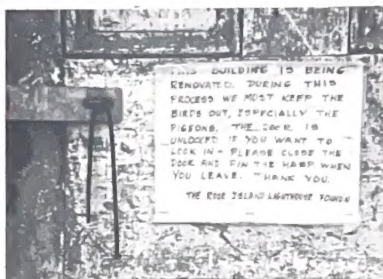 THIS BUILDING IS BEING
RENOVATED. DURING THIS
PROCESS WE MUST KEEP THE
BIRDS OUT, ESPECIALLY THE
PIGEONS. THE DOOR IS
UNLOCKED IF YOU WANT TO
LOOK IN - PLEASE CLOSE THE
DOOR AND PIN THE HASP WHEN
YOU LEAVE. THANK YOU.
THE ROSE ISLAND LIGHTHOUSE